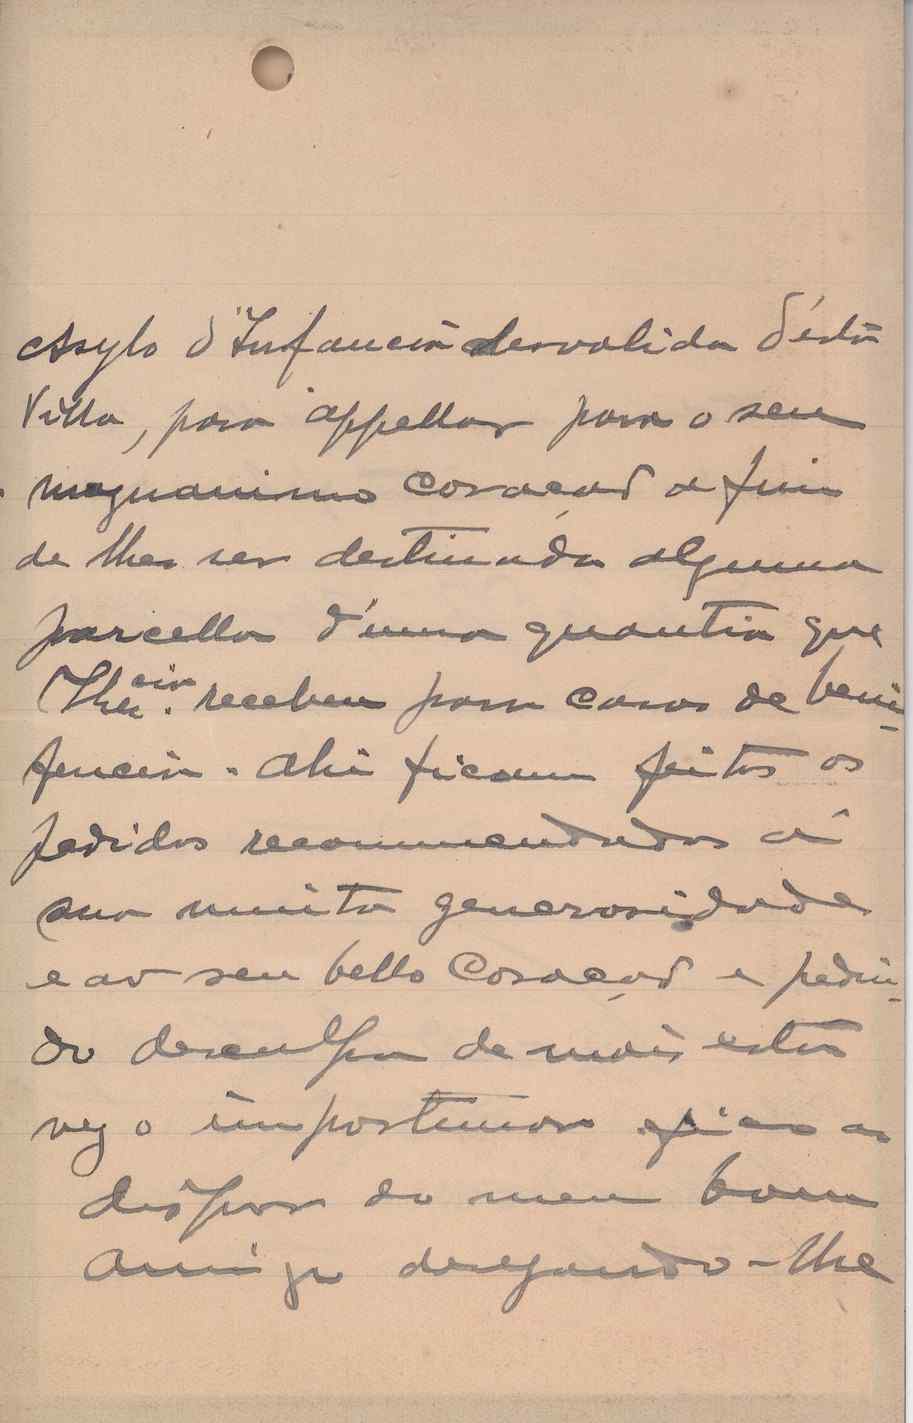 Asylo d'Infancia desvalida d'esta
Villa, para appellar para o seu
magnanimo coração a fim
de lhes ser destinada alguma
parcella d'uma quantia que
V. Ex.cia recebeu para casos de beni-
ficencia. Ahi ficam feitos os
pedidos recommendados á
sua muita generosidade
e ao seu bello Coração e pedin-
do desculpa de mais esta
vez o importunar fico ao
dispor do meu bom
amigo desejando-lhe